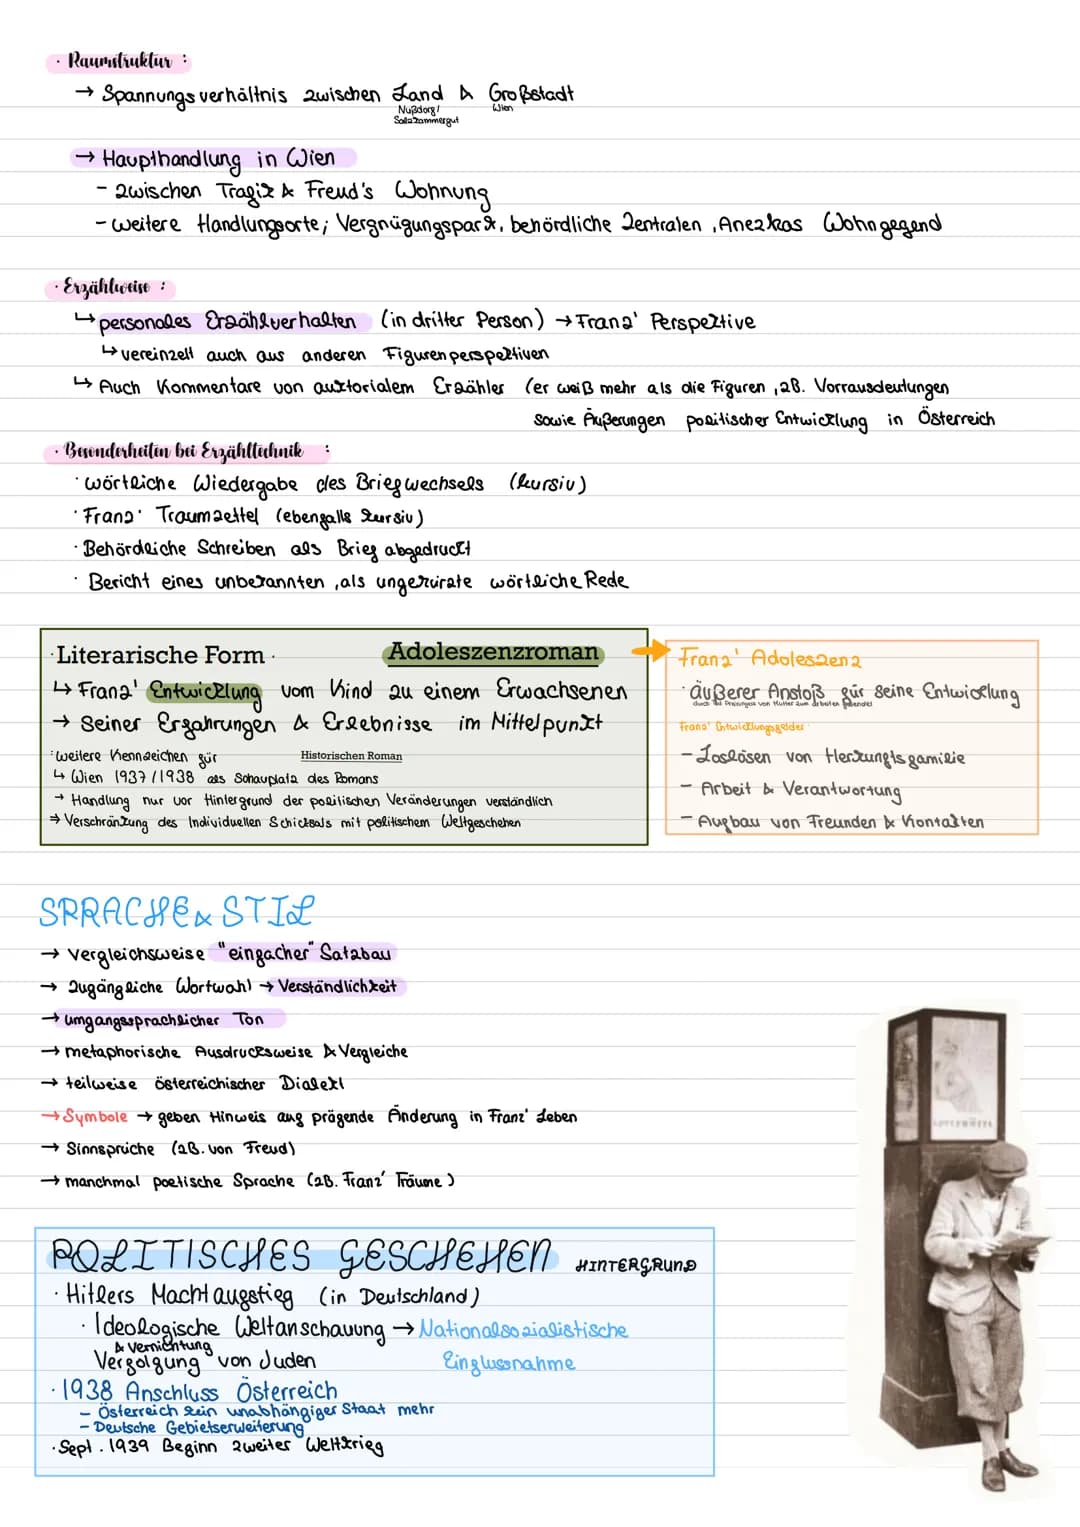 · Raumstruktur :
→ Spannungsverhältnis zwischen Land & Großstadt
Nußdorf/ Wien
Salzkammergut
→ Haupthandlung in Wien
- zwischen Trafik & Freud's Wohnung
- weitere Handlungsorte; Vergnügungspark, behördliche Zentralen, Anezkas Wohngegend
· Erzählweise :
↳ personales Erzählverhalten (in dritter Person) → Franz' Perspektive
↳ vereinzelt auch aus anderen Figurenperspektiven
↳ Auch Kommentare von auktorialem Erzähler (er weiß mehr als die Figuren, zB. Vorrausdeutungen
sowie Äußerungen politischer Entwicklung in Österreich
· Besonderheiten bei Erzähltechnik :
· wörtliche Wiedergabe des Briefwechsels (kursiv)
· Franz' Traumzettel (ebenfalls kursiv)
· Behördliche Schreiben als Brief abgedruckt
· Bericht eines unbekannten, als ungekürzte wörtliche Rede
· Literarische Form · Adoleszenzroman
↳ Franz' Entwicklung vom Kind zu einem Erwachsenen
→ Seiner Erfahrungen & Erlebnisse im Mittelpunkt
· weitere Kennzeichen für Historischen Roman
↳ Wien 1937/1938 als Schauplatz des Romans
→ Handlung nur vor Hintergrund der politischen Veränderungen verständlich
⇒ Verschränkung des Individuellen Schicksals mit politischem Weltgeschehen
Franz' Adoleszenz
· äußerer Anstoß für seine Entwicklung
von Mutter zum arbeiten
Franz' Entwicklungsfelder
- Loslösen von Herkunftsfamilie
- Arbeit & Verantwortung
- Aufbau von Freunden & Kontakten
SPRACHE & STIL
→ vergleichsweise "einfacher" Satzbau
→ zugängliche Wortwahl → Verständlichkeit
→ umgangssprachlicher Ton
→ metaphorische Ausdrucksweise & Vergleiche
→ teilweise österreichischer Dialekt
→ Symbole → geben Hinweis auf prägende Änderung in Franz' Leben
→ Sinnsprüche (zB. von Freud)
→ manchmal poetische Sprache (zB. Franz' Träume)
POLITISCHES GESCHEHEN HINTERGRUND
· Hitlers Machtaufstieg (in Deutschland)
· Ideologische Weltanschauung → Nationalsozialistische
& Vernichtung
Verfolgung von Juden Einflussnahme
· 1938 Anschluss Österreich
- Österreich kein unabhängiger Staat mehr
- Deutsche Gebietserweiterung
· Sept. 1939 Beginn zweiter Weltkrieg